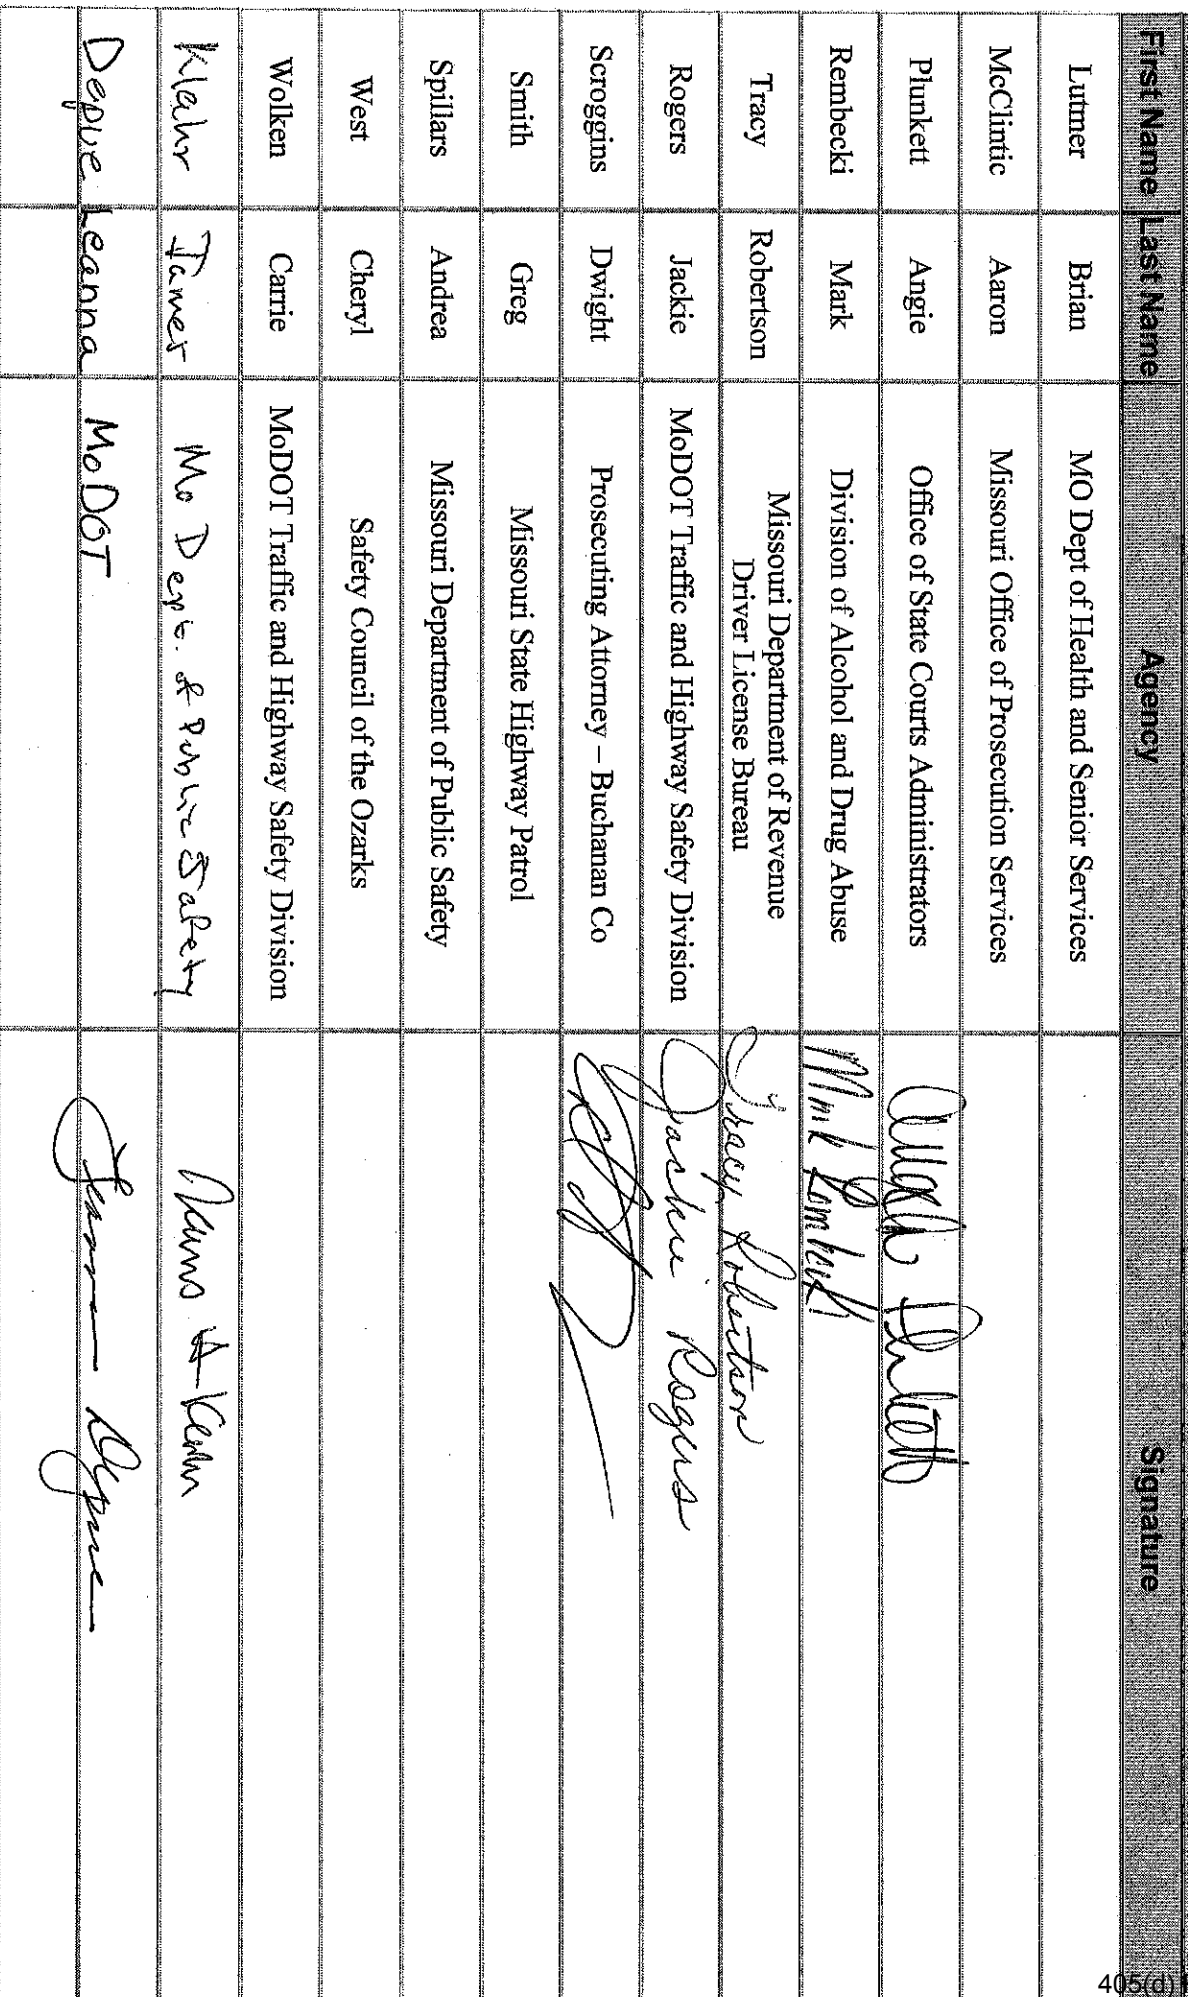 First Name Last Name Agency Signature
Lutmer Brian MO Dept of Health and Senior Services
McClintic Aaron Missouri Office of Prosecution Services
Plunkett Angie Office of State Courts Administrators Angela Plunkett
Rembecki Mark Division of Alcohol and Drug Abuse Mark Rembecki
Tracy Robertson Missouri Department of Revenue
Driver License Bureau Tracy Robertson
Rogers Jackie MoDOT Traffic and Highway Safety Division Jackie Rogers
Scroggins Dwight Prosecuting Attorney – Buchanan Co
Smith Greg Missouri State Highway Patrol
Spillars Andrea Missouri Department of Public Safety
West Cheryl Safety Council of the Ozarks
Wolken Carrie MoDOT Traffic and Highway Safety Division
Klahr James Mo Dept. of Public Safety
Depue Leanna MoDOT Leanna Depue
405(d)